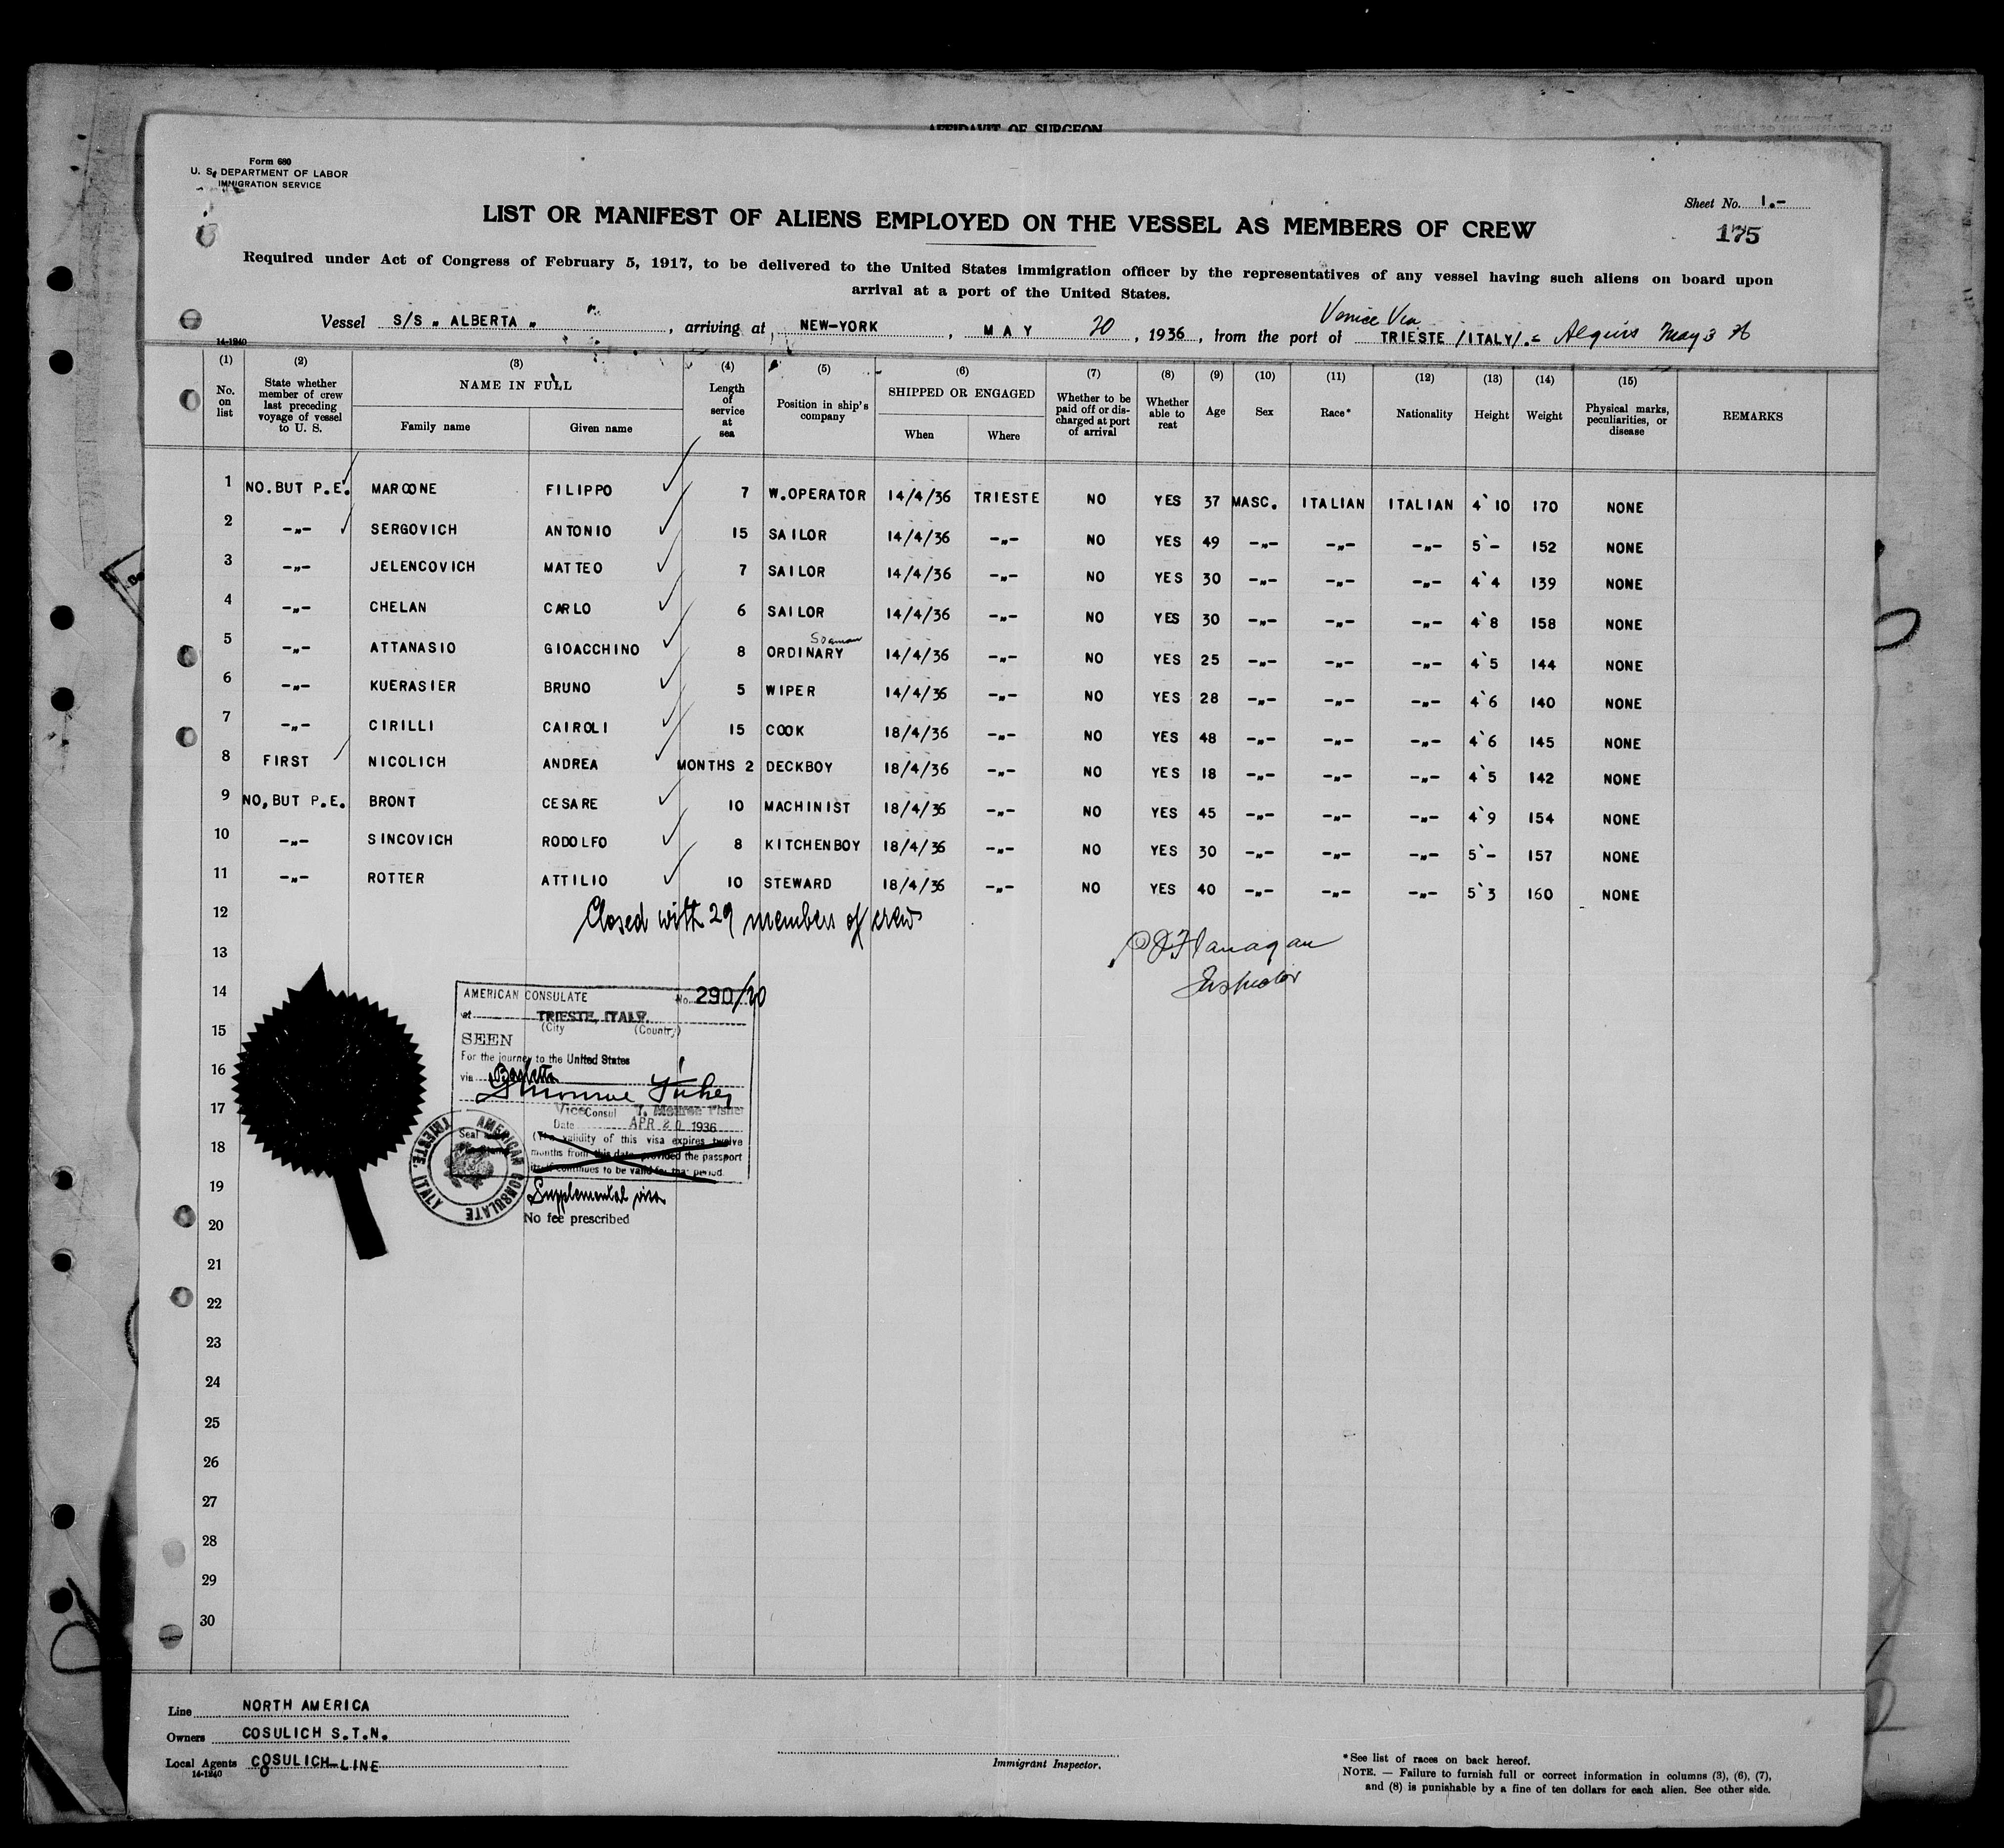 AFFIDAVIT OF SURGEON
Form 680
U. S. DEPARTMENT OF LABOR
IMMIGRATION SERVICE
Sheet No. 1.-
175
LIST OR MANIFEST OF ALIENS EMPLOYED ON THE VESSEL AS MEMBERS OF CREW
Required under Act of Congress of February 5, 1917, to be delivered to the United States immigration officer by the representatives of any vessel having such aliens on board upon
arrival at a port of the United States.
Venice Via
Vessel S/S „ ALBERTA „, arriving at NEW-YORK, MAY 20, 1936, from the port of TRIESTE /ITALY/.= May 3
14-1240
(1) (2) (3) (4) (5) (6) (7) (8) (9) (10) (11) (12) (13) (14) (15)
No. on list State whether member of crew last preceding voyage of vessel to U. S. NAME IN FULL Family name Given name Length of service at sea Position in ship's company SHIPPED OR ENGAGED When Where Whether to be paid off or discharged at port of arrival Whether able to read Age Sex Race* Nationality Height Weight Physical marks, peculiarities, or disease REMARKS
1 NO.BUT P.E. MAROONE FILIPPO 7 W.OPERATOR 14/4/36 TRIESTE NO YES 37 MASC. ITALIAN ITALIAN 4`10 170 NONE
2 -„- SERGOVICH ANTONIO 15 SAILOR 14/4/36 -„- NO YES 49 -„- -„- -„- 5`- 152 NONE
3 -„- JELENCOVICH MATTEO 7 SAILOR 14/4/36 -„- NO YES 30 -„- -„- -„- 4`4 139 NONE
4 -„- CHELAN CARLO 6 SAILOR 14/4/36 -„- NO YES 30 -„- -„- -„- 4`8 158 NONE
Seaman
5 -„- ATTANASIO GIOACCHINO 8 ORDINARY 14/4/36 -„- NO YES 25 -„- -„- -„- 4`5 144 NONE
6 -„- KUERASIER BRUNO 5 WIPER 14/4/36 -„- NO YES 28 -„- -„- -„- 4`6 140 NONE
7 -„- CIRILLI CAIROLI 15 COOK 18/4/36 -„- NO YES 48 -„- -„- -„- 4`6 145 NONE
8 FIRST NICOLICH ANDREA MONTHS 2 DECKBOY 18/4/36 -„- NO YES 18 -„- -„- -„- 4`5 142 NONE
9 NO,BUT P.E. BRONT CESARE 10 MACHINIST 18/4/36 -„- NO YES 45 -„- -„- -„- 4`9 154 NONE
10 -„- SINCOVICH RODOLFO 8 KITCHENBOY 18/4/36 -„- NO YES 30 -„- -„- -„- 5`- 157 NONE
11 -„- ROTTER ATTILIO 10 STEWARD 18/4/36 -„- NO YES 40 -„- -„- -„- 5`3 160 NONE
12 Closed with 29 members of crew
13 Flanagan
Inspector
14 AMERICAN CONSULATE No. 290/20
at TRIESTE, ITALY.
15 (City (Country)
SEEN
For the journey to the United States
16 via
17 Vice Consul T. Monroe Fisher
Date APR 20 1936
18 (The validity of this visa expires twelve
months from this date, provided the passport
itself continues to be valid for that period.
Seal
AMERICAN CONSULATE TRIESTE, ITALY
19 Supplemental visa
20 No fee prescribed
21
22
23
24
25
26
27
28
29
30
Line NORTH AMERICA
Owners COSULICH S.T.N.
Local Agents COSULICH-LINE
14-1240
Immigrant Inspector.
*See list of races on back hereof.
NOTE. — Failure to furnish full or correct information in columns (3), (6), (7),
and (8) is punishable by a fine of ten dollars for each alien. See other side.